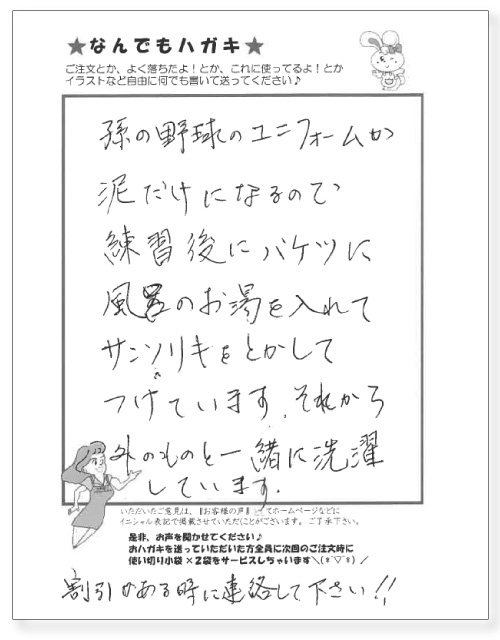 ★なんでもハガキ★
ご注文とか、よく落ちたよ！とか、これに使ってるよ！とか
イラストなど自由に何でも書いて送ってください♪
孫の野球のユニフォームが
泥だけになるので
練習後にバケツに
風呂のお湯を入れて
サンソリキをとかして
つけています。それから
外のものと一緒に洗濯
しています。
いただいたご意見は、『お客様の声』としてホームページなどに
イニシャル表記で掲載させていただくことがございます。ご了承下さい。
是非、お声を聞かせてください♪
おハガキを送っていただいた方全員に次回のご注文時に
使い切り小袋×2袋をサービスしちゃいます＼(*´▽`*)／
割引のある時に連絡して下さい!!